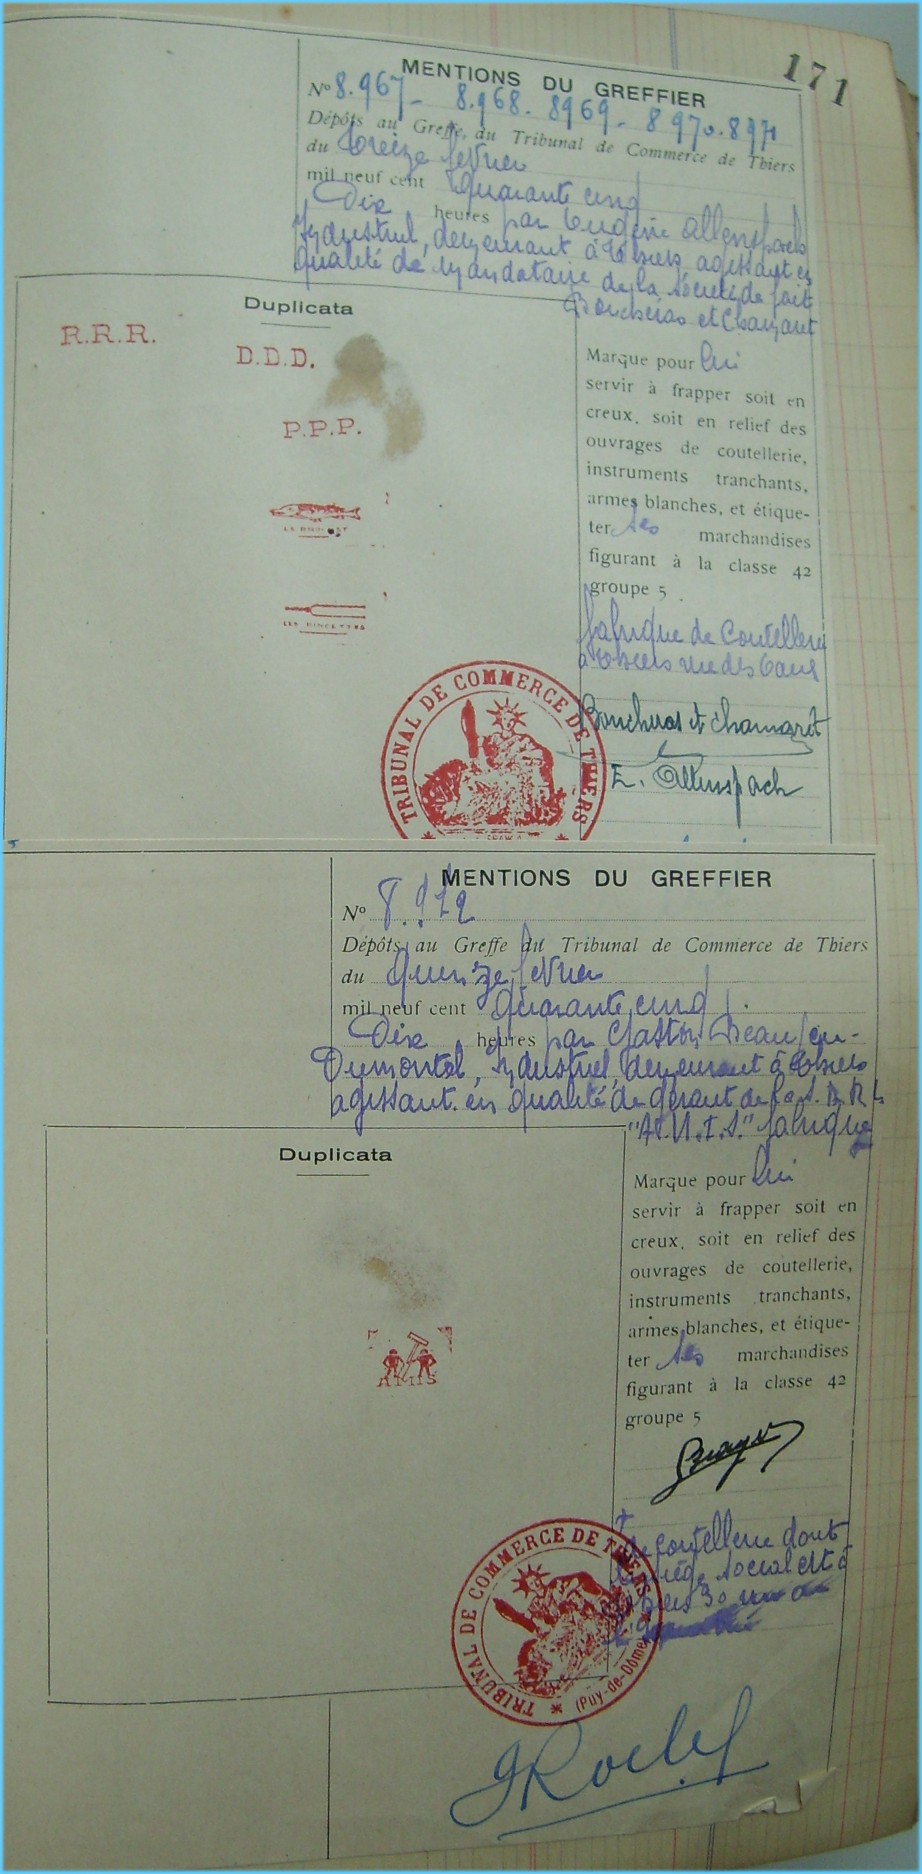 171
MENTIONS DU GREFFIER
No 8.967 - 8.968 - 8969 - 8970 - 8971
Dépôts au Greffe du Tribunal de Commerce de Thiers
du treize février
mil neuf cent quarante cinq
Dix heures par Eugène Allenspach
Industriel, demeurant à Thiers, agissant en
qualité de mandataire de la société de fait
Duplicata
R.R.R.
D.D.D.
P.P.P.
LE BROCHET
LES PINCETTES
Marque pour lui
servir à frapper soit en
creux, soit en relief des
ouvrages de coutellerie,
instruments tranchants,
armes blanches, et étique-
ter ses marchandises
figurant à la classe 42
groupe 5
fabrique de Coutellerie
à Thiers rue des
E. Allenspach
TRIBUNAL DE COMMERCE DE THIERS
MENTIONS DU GREFFIER
No 8.972
Dépôts au Greffe du Tribunal de Commerce de Thiers
du quinze février
mil neuf cent quarante cinq
Dix heures par Gaston
Dumontel, Industriel, demeurant à Thiers
agissant en qualité de gérant de la S.A.R.L
fabrique
Duplicata
Marque pour lui
servir à frapper soit en
creux, soit en relief des
ouvrages de coutellerie,
instruments tranchants,
armes blanches, et étique-
ter ses marchandises
figurant à la classe 42
groupe 5
de coutellerie dont
le siège social est à
Thiers 30
TRIBUNAL DE COMMERCE DE THIERS
(Puy-de-Dôme)